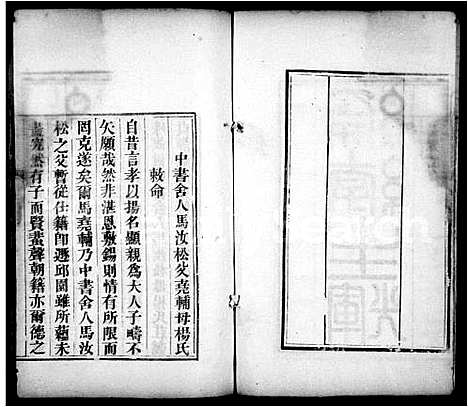 中書舍人馬汝松父堯輔母楊氏
敕命
自昔言孝以揚名顯親為大人子疇不
欠願哉然非湛恩敷錫則情有所限而
罔克遂矣爾馬堯輔乃中書舍人馬汝
松之父暫從仕籍即遯邱園雖所蘊未
盡究然有子而賢蜚聲朝籍亦爾德之